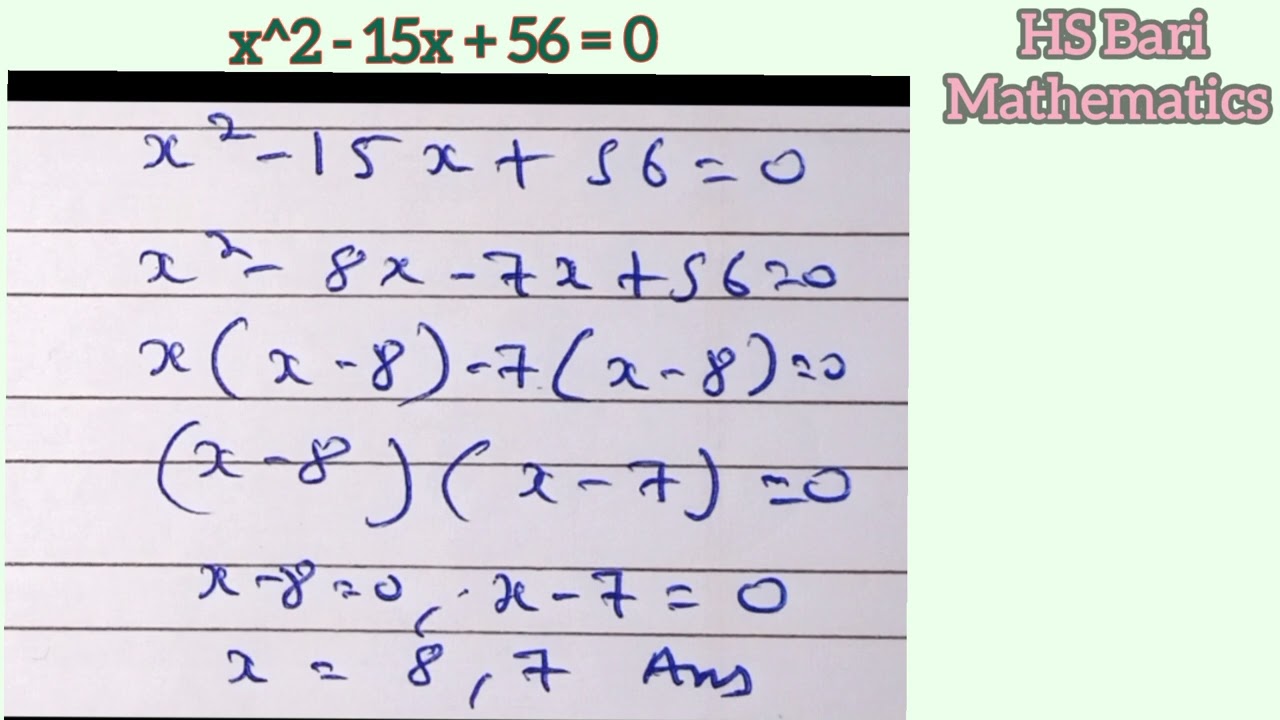 x^2 - 15x + 56 = 0
HS Bari
Mathematics
x² - 15x + 56 = 0
x² - 8x - 7x + 56 = 0
x(x - 8) - 7(x - 8) = 0
(x - 8)(x - 7) = 0
x - 8 = 0, x - 7 = 0
x = 8, 7 Ans